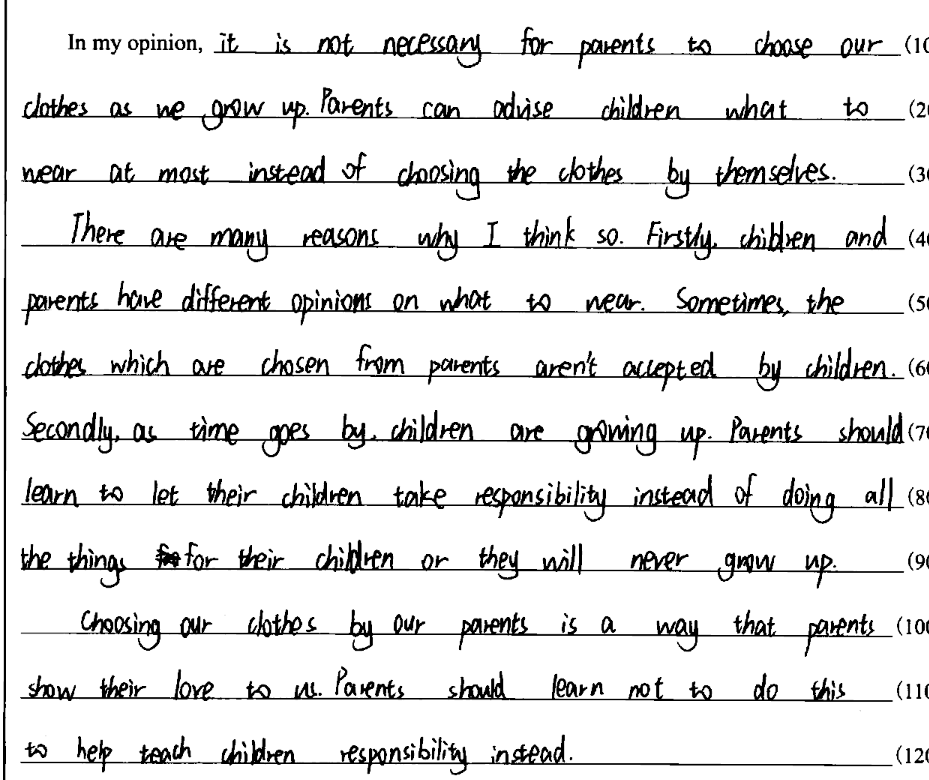 In my opinion, it is not necessary for parents to choose our (10
clothes as we grow up. Parents can advise children what to (20
wear at most instead of choosing the clothes by themselves. (30
There are many reasons why I think so. Firstly, children and (40
parents have different opinions on what to wear. Sometimes, the (50
clothes which are chosen from parents aren't accepted by children. (60
Secondly, as time goes by, children are growing up. Parents should (70
learn to let their children take responsibility instead of doing all (80
the things for their children or they will never grow up. (90
Choosing our clothes by our parents is a way that parents (100
show their love to us. Parents should learn not to do this (110
to help teach children responsibility instead. (120